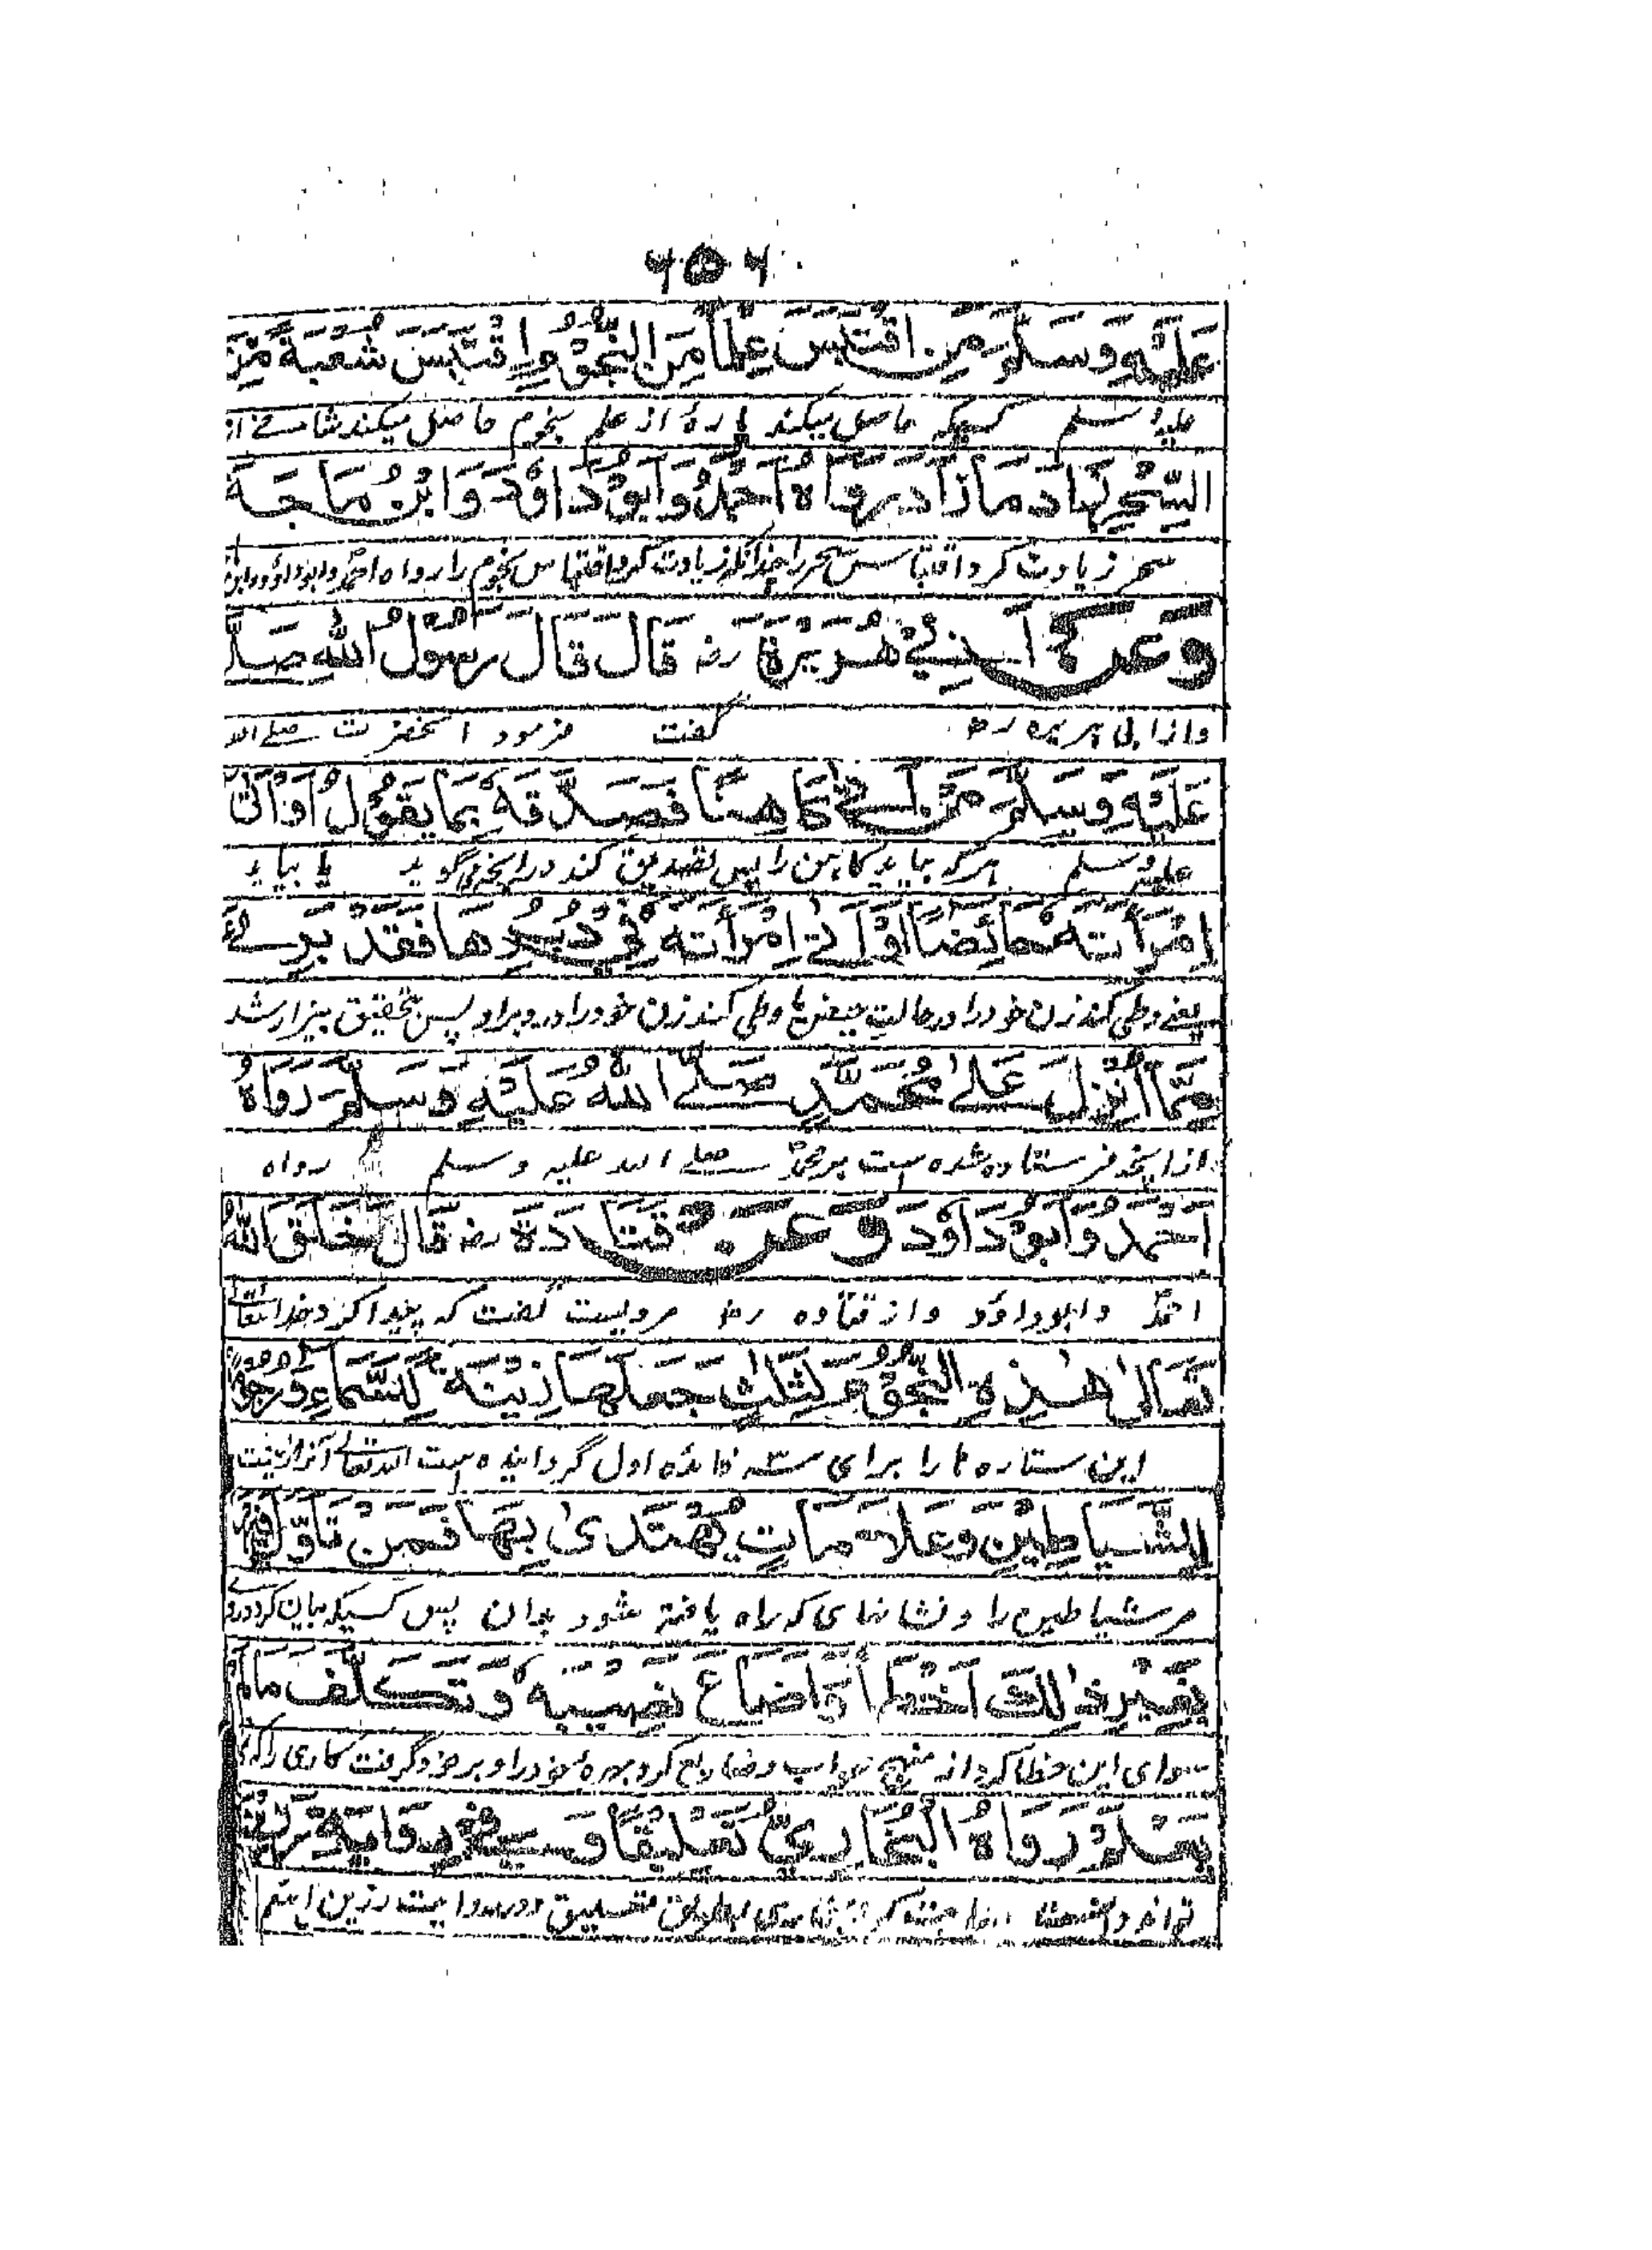 ۶۵۶
عَلَيْهِ وَسَلَّمَ مَنِ اقْتَبَسَ عِلْمًا مِّنَ النُّجُوْمِ اِقْتَبَسَ شُعْبَةً مِّنَ
علیه وسلم کسیکه حاصل میکند پاره از علم نجوم حاصل میکند شاخے از
السِّحْرِ زَادَ مَا زَادَ رَوَاهُ اَحْمَدُ وَاَبُوْ دَاوُدَ وَابْنُ مَاجَةَ
سحر زیادت کرد اقتباس سحر را چندانکه زیادت کرد اقتباس نجوم را رواه احمد وابوداؤد وابن
وَعَنْ اَبِيْ هُرَيْرَةَ رض قَالَ قَالَ رَسُوْلُ اللهِ صَلَّى
واز ابی هریره رض گفت فرمود آنحضرت صلے الله
عَلَيْهِ وَسَلَّمَ مَنْ اَتٰى كَاهِنًا فَصَدَّقَهٗ بِمَا يَقُوْلُ اَوْ اَتَى
علیه وسلم هر که بیاید کاهن را پس تصدیق کند در آنچه میگوید یا بیاید
اِمْرَأَتَهٗ حَائِضًا اَوْ اَتٰى اِمْرَأَتَهٗ فِيْ دُبُرِهَا فَقَدْ بَرِئَ
یعنے وطی کند زن خود را در حالت حیض یا وطی کند زن خود را در دبر او پس بتحقیق بیزار شد
مِمَّا اُنْزِلَ عَلٰى مُحَمَّدٍ صَلَّے اللهُ عَلَيْهِ وَسَلَّمَ رَوَاهُ
از آنچه فرستاده شده است بر محمد صلے الله علیه وسلم رواه
اَحْمَدُ وَاَبُوْ دَاوُدَ وَعَنْ قَتَادَةَ رض قَالَ خَلَقَ اللهُ
احمد وابوداؤد واز قتاده رض مرویست گفت که پیدا کرد خدا تعالے
تَعَالٰى هٰذِهِ النُّجُوْمَ لِثَلٰثٍ جَعَلَهَا زِيْنَةً لِّلسَّمَاءِ وَرُجُوْمًا
این ستاره ها را برای سه فائده اول گردانیده است الله تعالے آنرا زینت
لِلشَّيَاطِيْنِ وَعَلَامَاتٍ يُّهْتَدٰى بِهَا فَمَنْ تَاَوَّلَ فِيْهَا
مر شیاطین را و نشانهای که راه یافته شود بدان پس کسیکه بیان کرد در
بِغَيْرِ ذٰلِكَ اَخْطَأَ وَاَضَاعَ نَصِيْبَهٗ وَتَكَلَّفَ مَا لَا
سوای این خطا کرد از منهج صواب وضایع کرد بهره خود را و بر خود گرفت کاری را که
يَعْلَمُ رَوَاهُ الْبُخَارِيُّ تَعْلِيْقًا وَفِيْ رِوَايَةِ رَزِيْنٍ
نداند بخاری بطریق تعلیق ودر روایت رزین